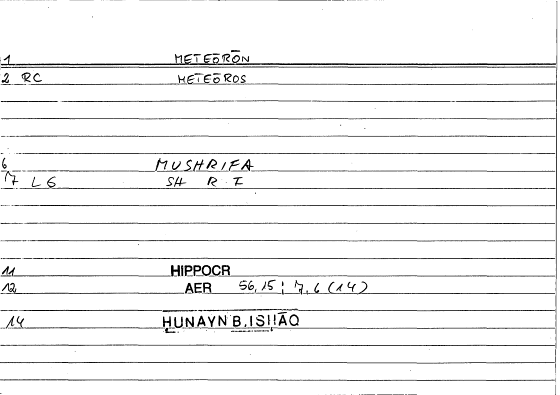 1 METEŌRŌN
2 RC METEŌROS
6 MUSHRIFA
17 L6 SH R F
11 HIPPOCR
12 AER 56,15; 7,6 (14)
14 ḤUNAYN B.ISḤĀQ